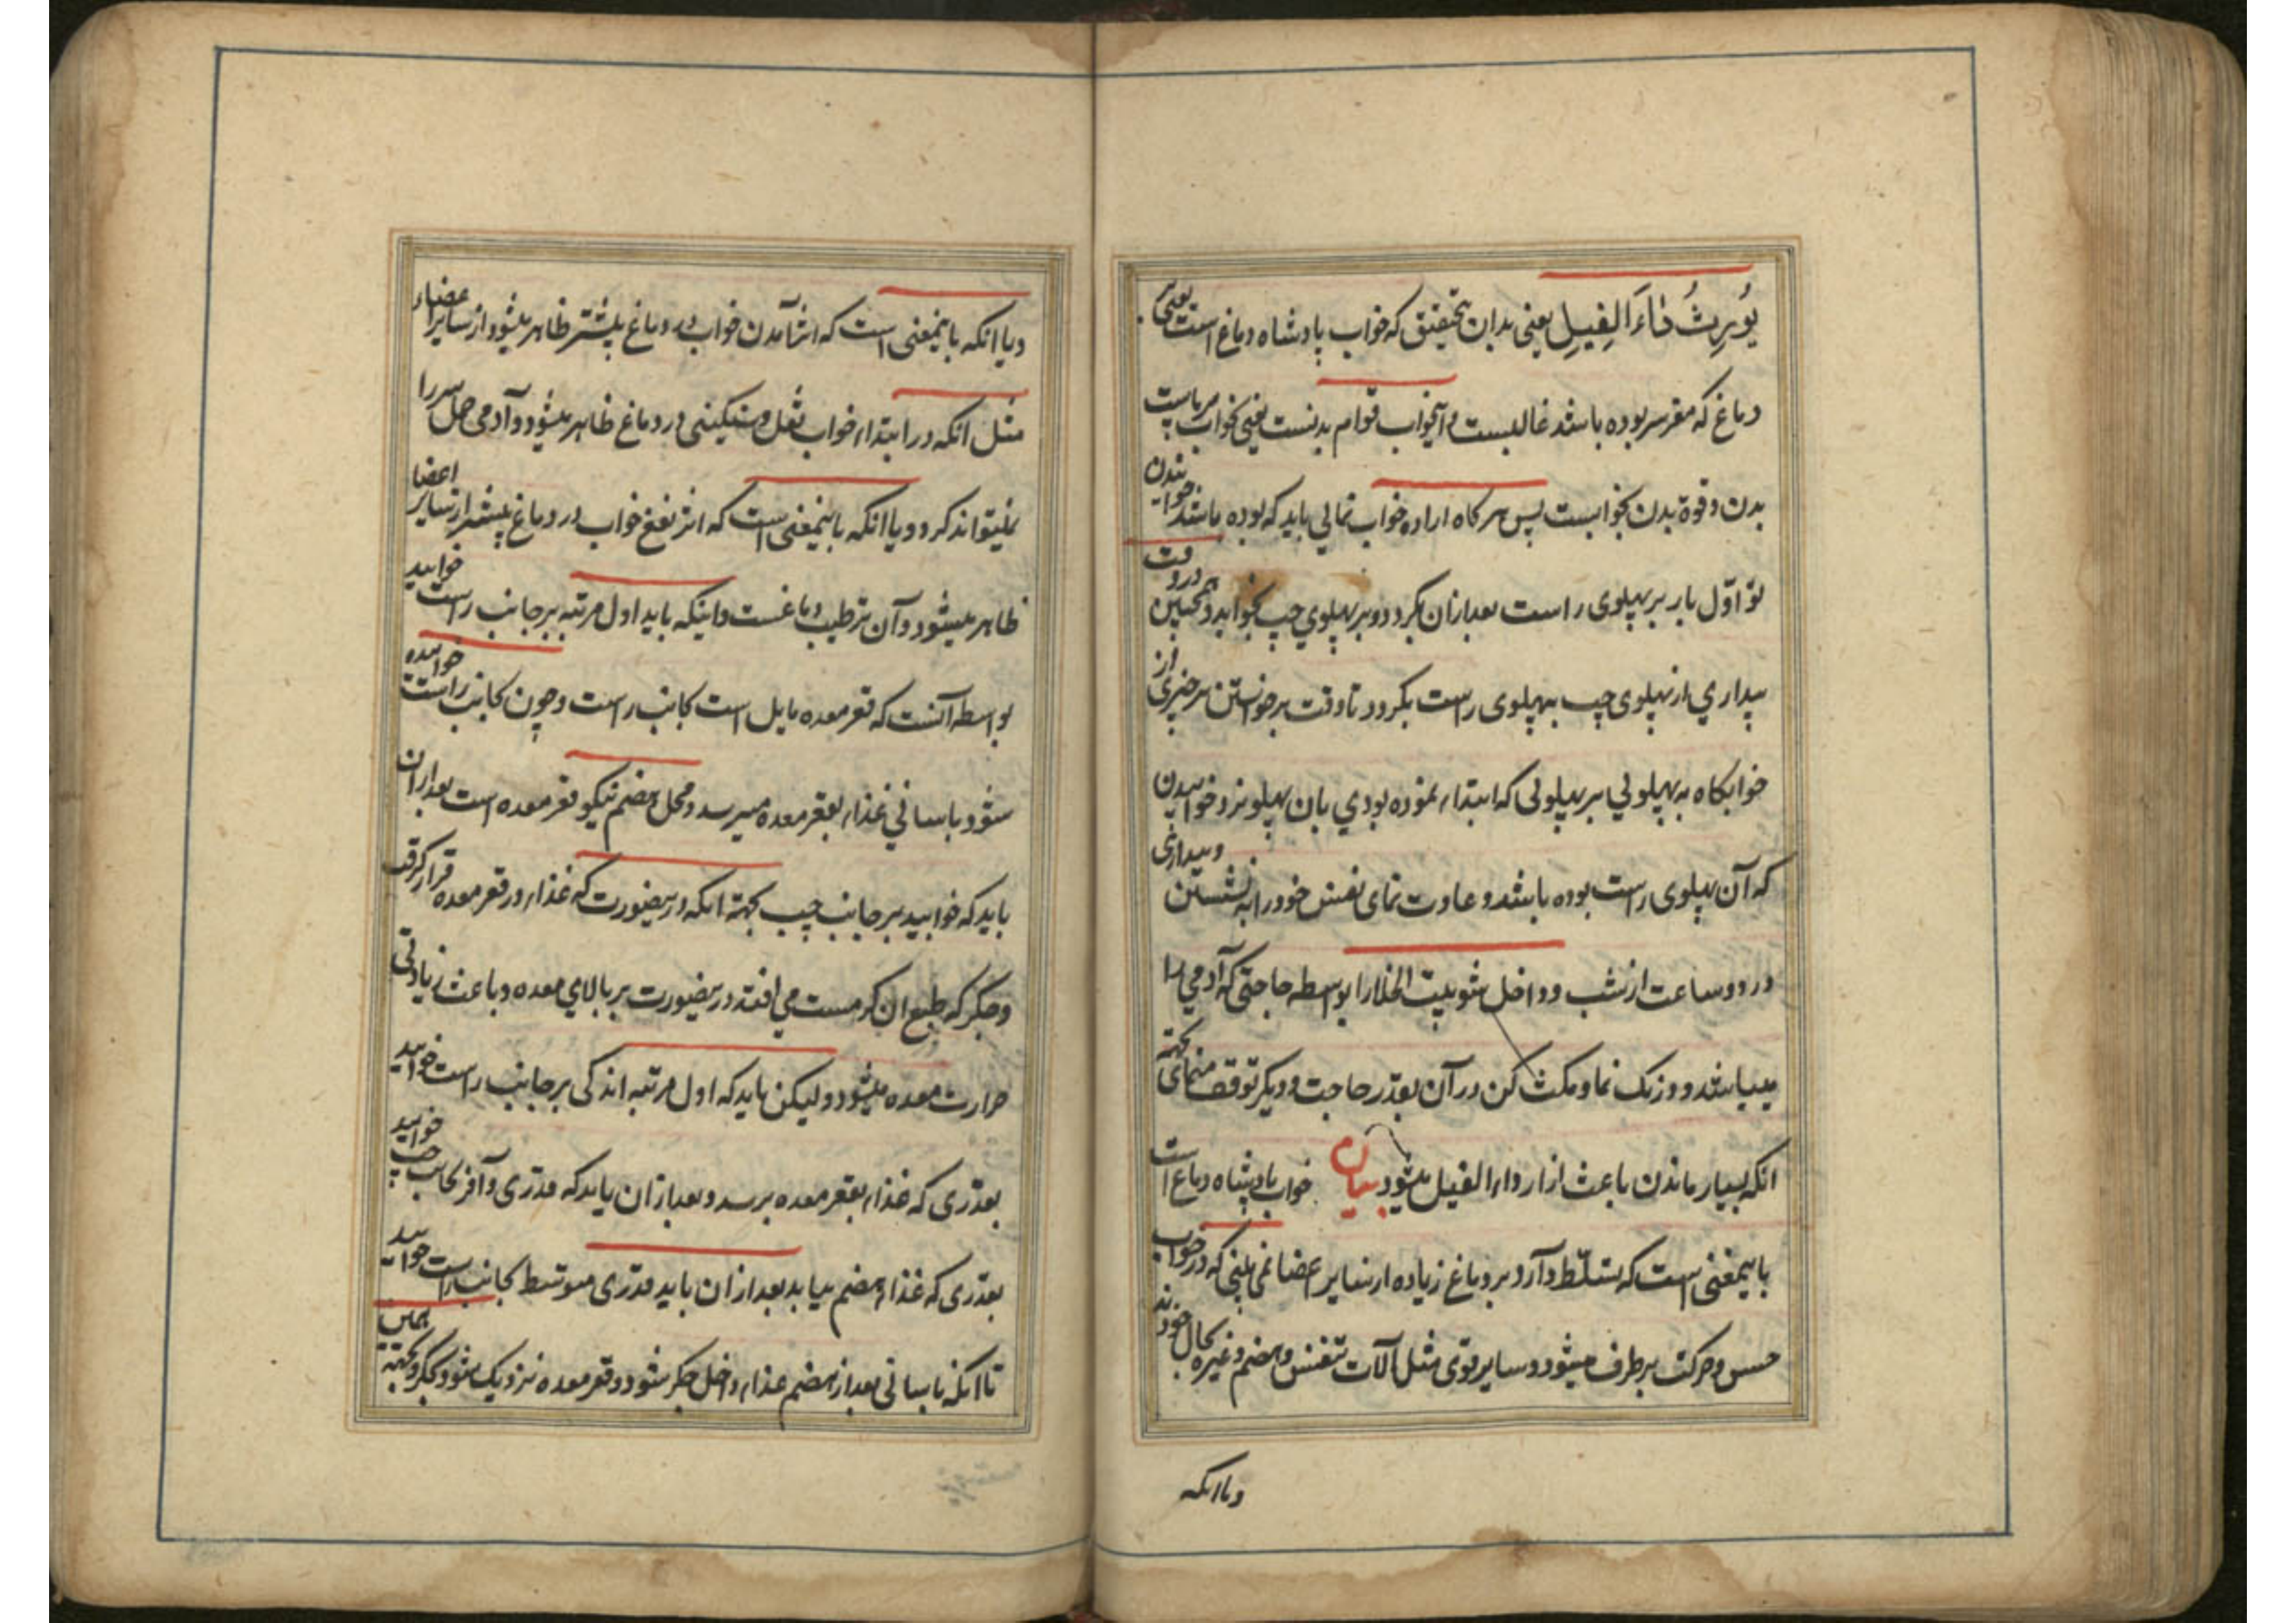 یُورِثُ دٰاءَ الفِیلِ یعنی بدان بتحقیق که خواب پادشاه دماغ است یعنی
دماغ که مقر سر بوده باشد غالبست و آنخواب قوام بدنست یعنی بخواب برپاست
بدن و قوة بدن بخوابست پس هرکاه اراده خواب نمائی باید که بوده باشد خوابیدن
تو اوّل بار بر پهلوی راست بعد ازان بکرد و بر پهلوي چپ بخوابید و همچنین در وقت
بیداري از پهلوی چپ بپهلوی راست بکرد تا وقت برخواستن برخیزی از
خوابکاه به پهلوئي بر پهلوئی که ابتداء نموده بودي بان پهلو نزد خوابیدن
که آن پهلوی راست بوده باشد و عادت نمای نفس خود را به نشستن و بیداری
در دو ساعت از شب و داخل شو بیت الخلا را بواسطه حاجتی که آدمي را
میباشد و درنک نما و مکث کن در آن بقدر حاجت و دیکر توقف منمای بجهة
انکه بسیار ماندن باعث ازار داء الفیل میشود بیان خواب پادشاه دماغ است
باینمعنی است که تسلّط دارد بر دماغ زیاده از سایر اعضا نمی بینی که در خواب
حس و حرکت برطرف میشود و سایر قوی مثل آلات تنفس و هضم و غیره بحال خودند
و یا انکه
و یا انکه باینمعنی است که اثر آمدن خواب در دماغ بیشتر ظاهر میشود از سایر اعضاء
مثل انکه در ابتداء خواب ثقل و سنکینی در دماغ ظاهر میشود و آدمی حمل سر را
نمیتواند کرد و یا انکه باینمعنی است که اثر نفع خواب در دماغ بیشتر از سایر اعضا
ظاهر میشود و آن ترطیب دماغست و اینکه باید اول مرتبه بر جانب راست خوابید
بواسطه آنست که قعر معده مایل است بجانب راست و چون بجانب راست خوابیده
شود باسانی غذاء بقعر معده میرسد و محل هضم نیکو قعر معده است بعد ازان
باید که خوابید بر جانب چپ بجهة انکه درینصورت که غذاء در قعر معده قرار کرفت
و جکر که طبع ان کرمست می افتد درینصورت بر بالای معده و باعث زیادتی
حرارت معده میشود و لیکن باید که اول مرتبه اندکی بر جانب راست خوابید
بقدری که غذاء بقعر معده برسد و بعد ازان باید که قدری وافر بجانب چپ خوابید
بقدری که غذاء هضم بیابد بعد ازان باید قدری متوسط بجانب راست خوابید
تا انکه باسانی بعد از هضم غذاء داخل جکر شود و قعر معده نزدیک شود بجکر و بجهة همین